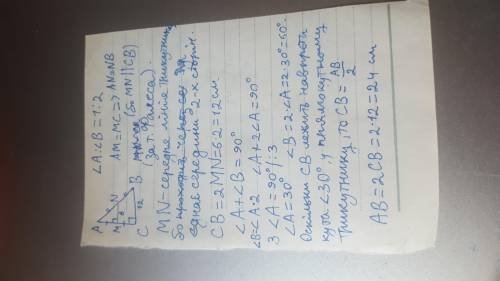 ∠A:∠B=1:2
A
M
N
6
12
C
B
AM=MC=> AN=NB
(бо MN||CB)
(за т. Фалеса).
MN-середня лінія трикутнику,
бо проходить через
єднає середини 2-х сторін.
CB=2MN=6·2=12см
∠A+∠B=90°
∠B=∠A·2 ∠A+2∠A=90°
3∠A=90°/:3
∠A=30° ∠B=2·∠A=2·30°=60°
Оскільки CB лежить навпроти
кута ∠30° у прямокутному
трикутнику, то CB=AB/2
AB=2CB=2·12=24 см